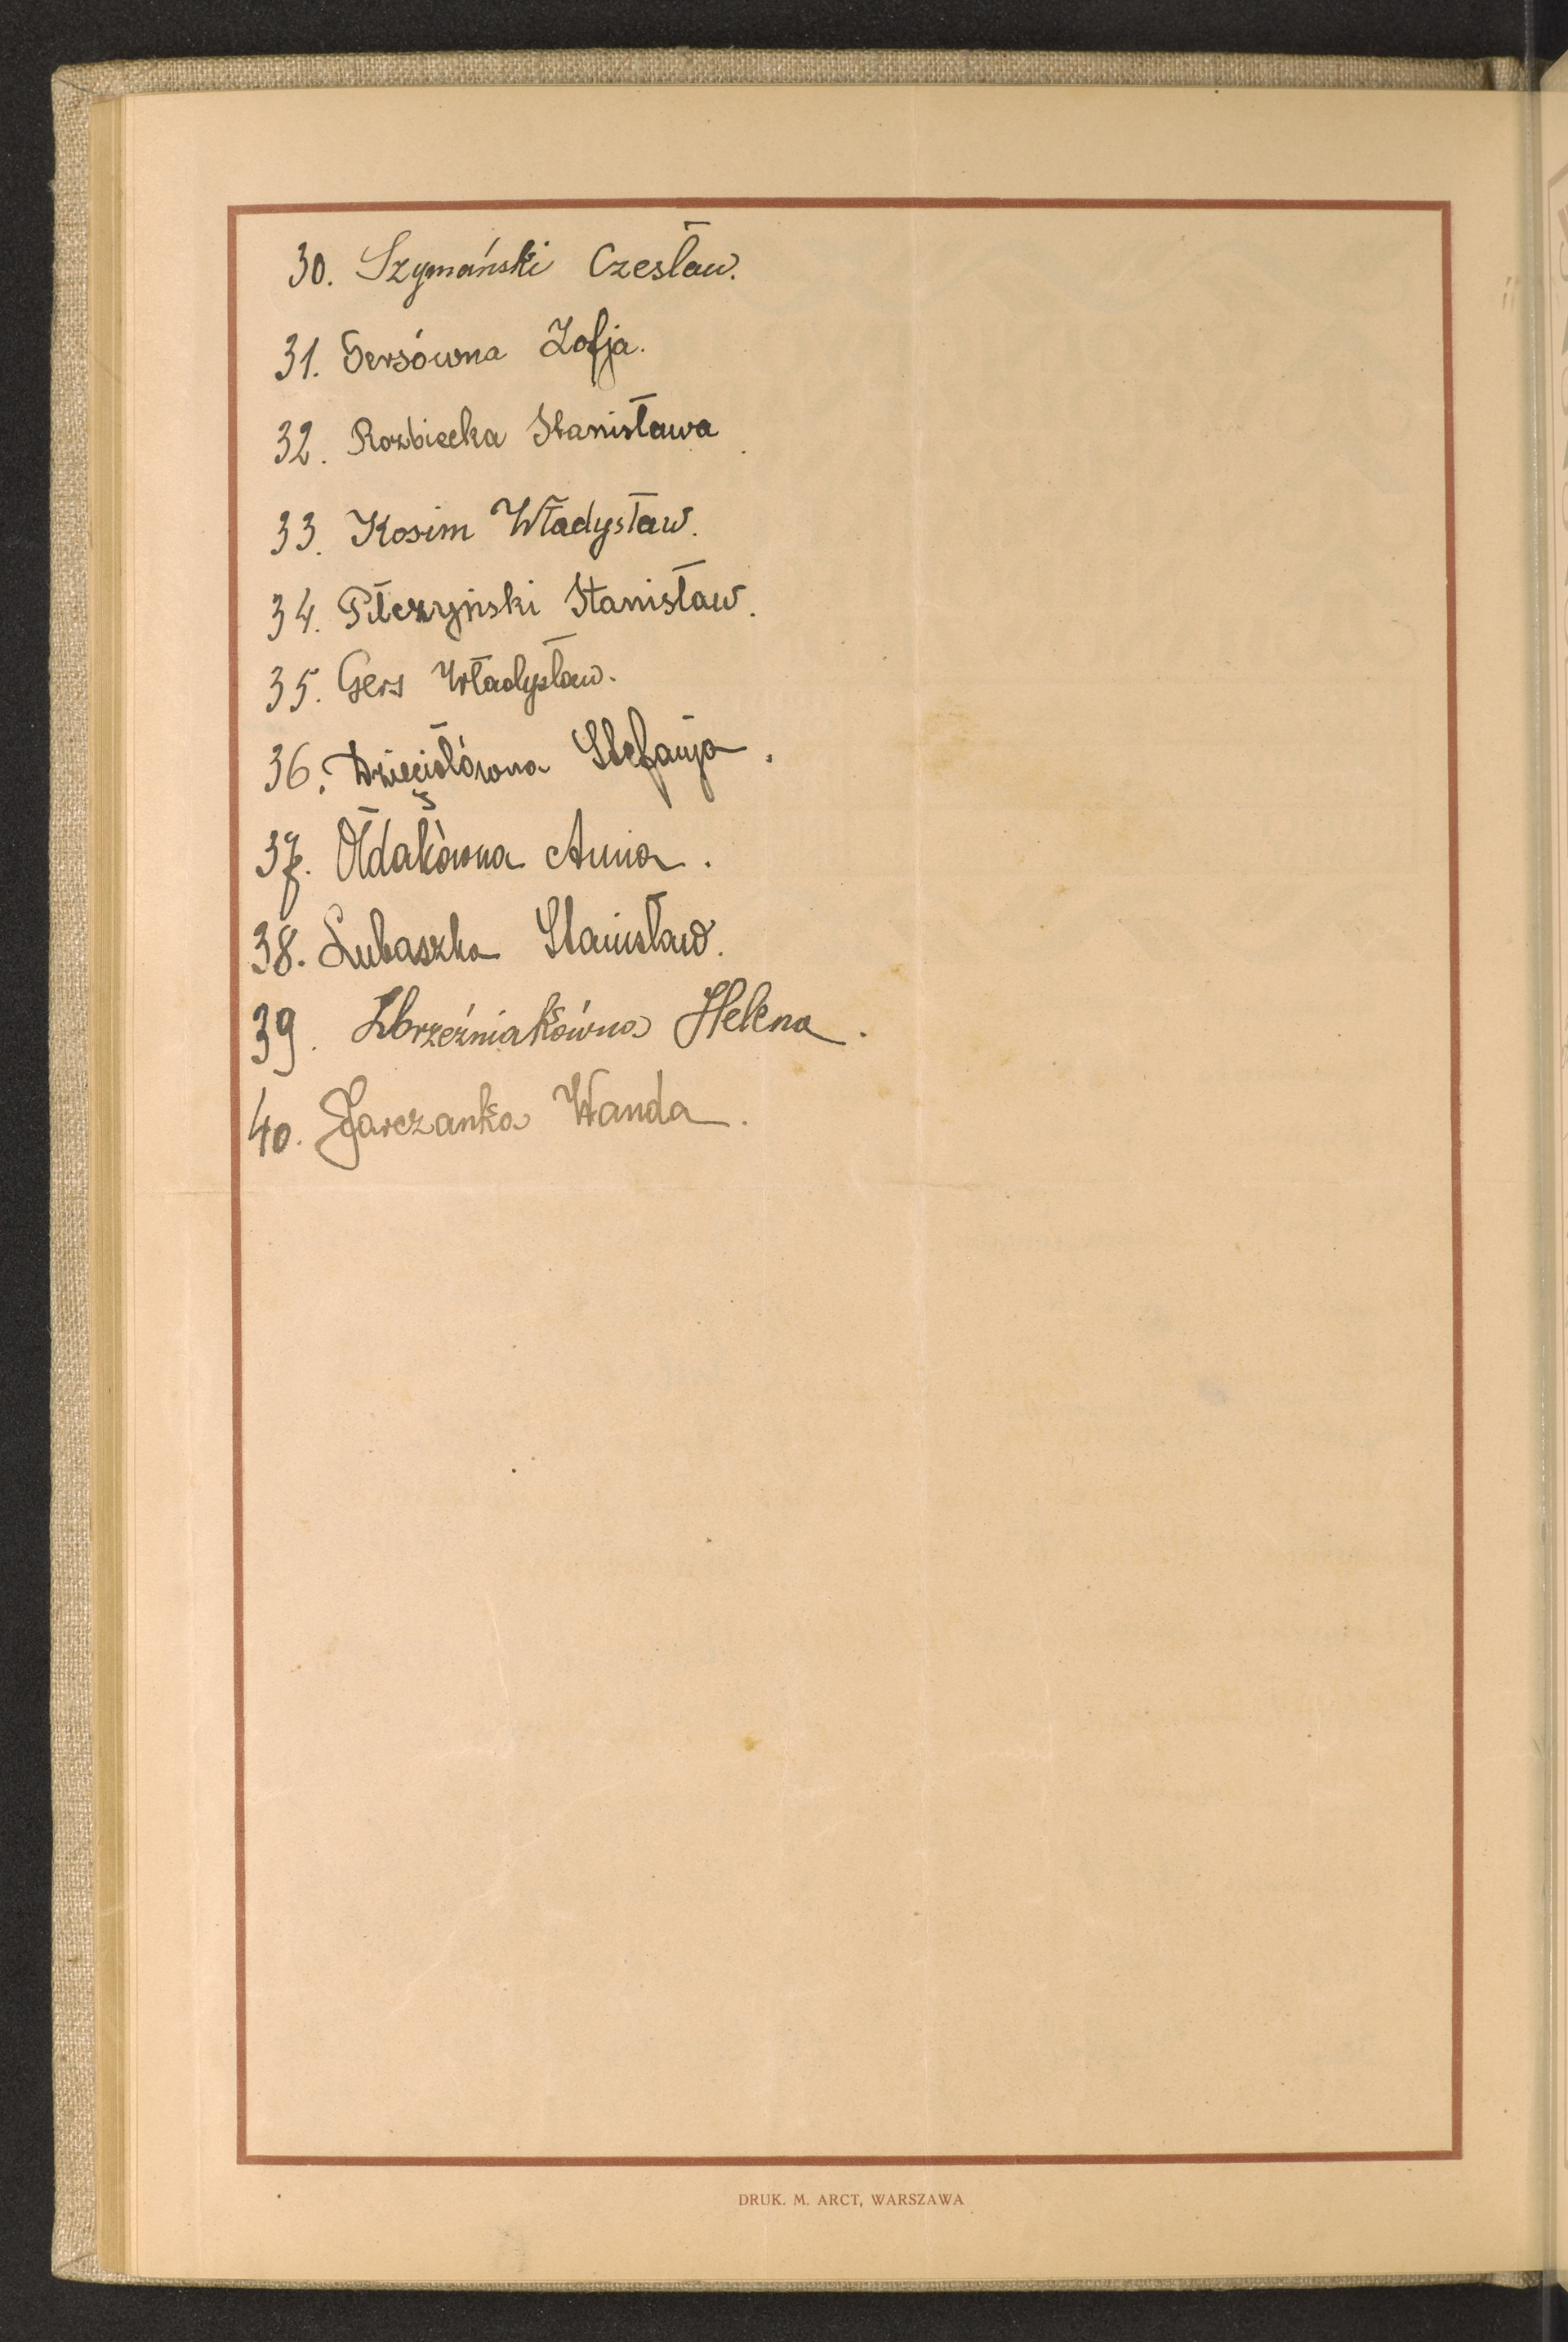 30. Szymański Czesław.
31. Gersówna Zofja.
32. Rozbiecka Stanisława.
33. Kosim Władysław.
34. Płczyński Stanisław.
35. Gers Władysław.
36. Dzięciołówna Stefanja.
37. Ołdakówna Anna.
38. Lubaszka Stanisław.
39. Zbrzeźniakówna Helena.
40. Jarczanka Wanda.
DRUK. M. ARCT, WARSZAWA